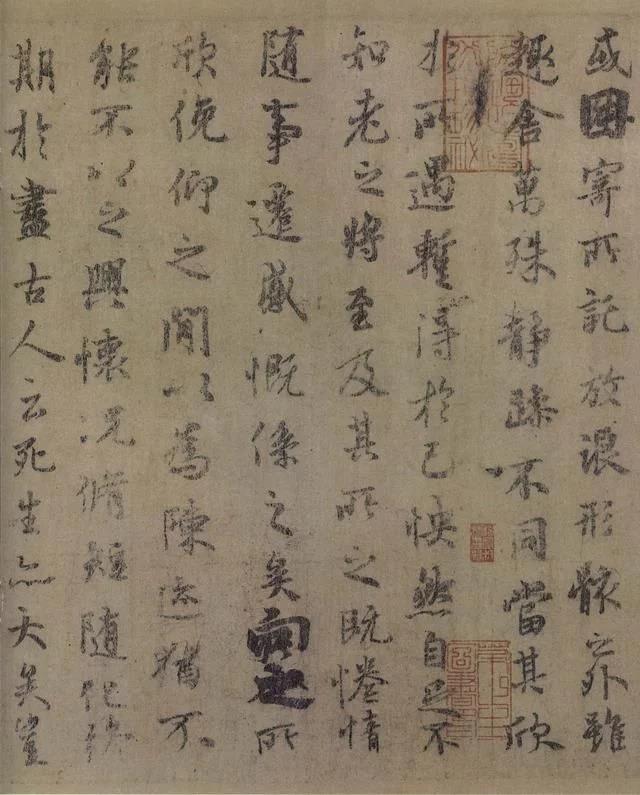 或因寄所託放浪形骸之外雖
趣舍萬殊靜躁不同當其欣
於所遇暫得於己怏然自足不
知老之將至及其所之既惓情
隨事遷感慨係之矣向之所
欣俛仰之閒以為陳迹猶不
能不以之興懷況脩短隨化終
期於盡古人云死生亦大矣豈